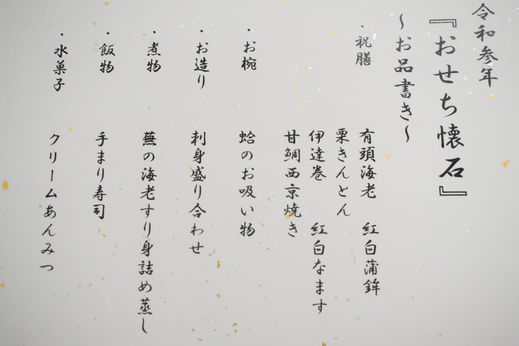 令和参年
『おせち懐石』
～お品書き～
・祝膳 有頭海老 紅白蒲鉾
栗きんとん
伊達巻 紅白なます
甘鯛西京焼き
・お椀 蛤のお吸い物
・お造り 刺身盛り合わせ
・煮物 蕪の海老すり身詰め蒸し
・飯物 手まり寿司
・水菓子 クリームあんみつ